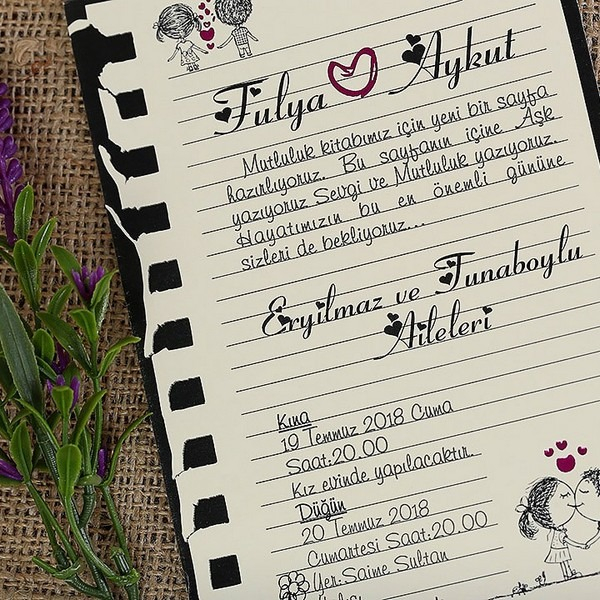 Fulya Aykut
Mutluluk kitabımız için yeni bir sayfa
hazırlıyoruz. Bu sayfanın içine Aşk
yazıyoruz.Sevgi ve Mutluluk yazıyoruz.
Hayatımızın bu en önemli gününe
sizleri de bekliyoruz...
Eryilmaz ve Tunaboylu
Aileleri
Kına
19 Temmuz 2018 Cuma
Saat:20.00
Kız evinde yapılacaktır.
Düğün
20 Temmuz 2018
Cumartesi Saat:20.00
Yer:Saime Sultan